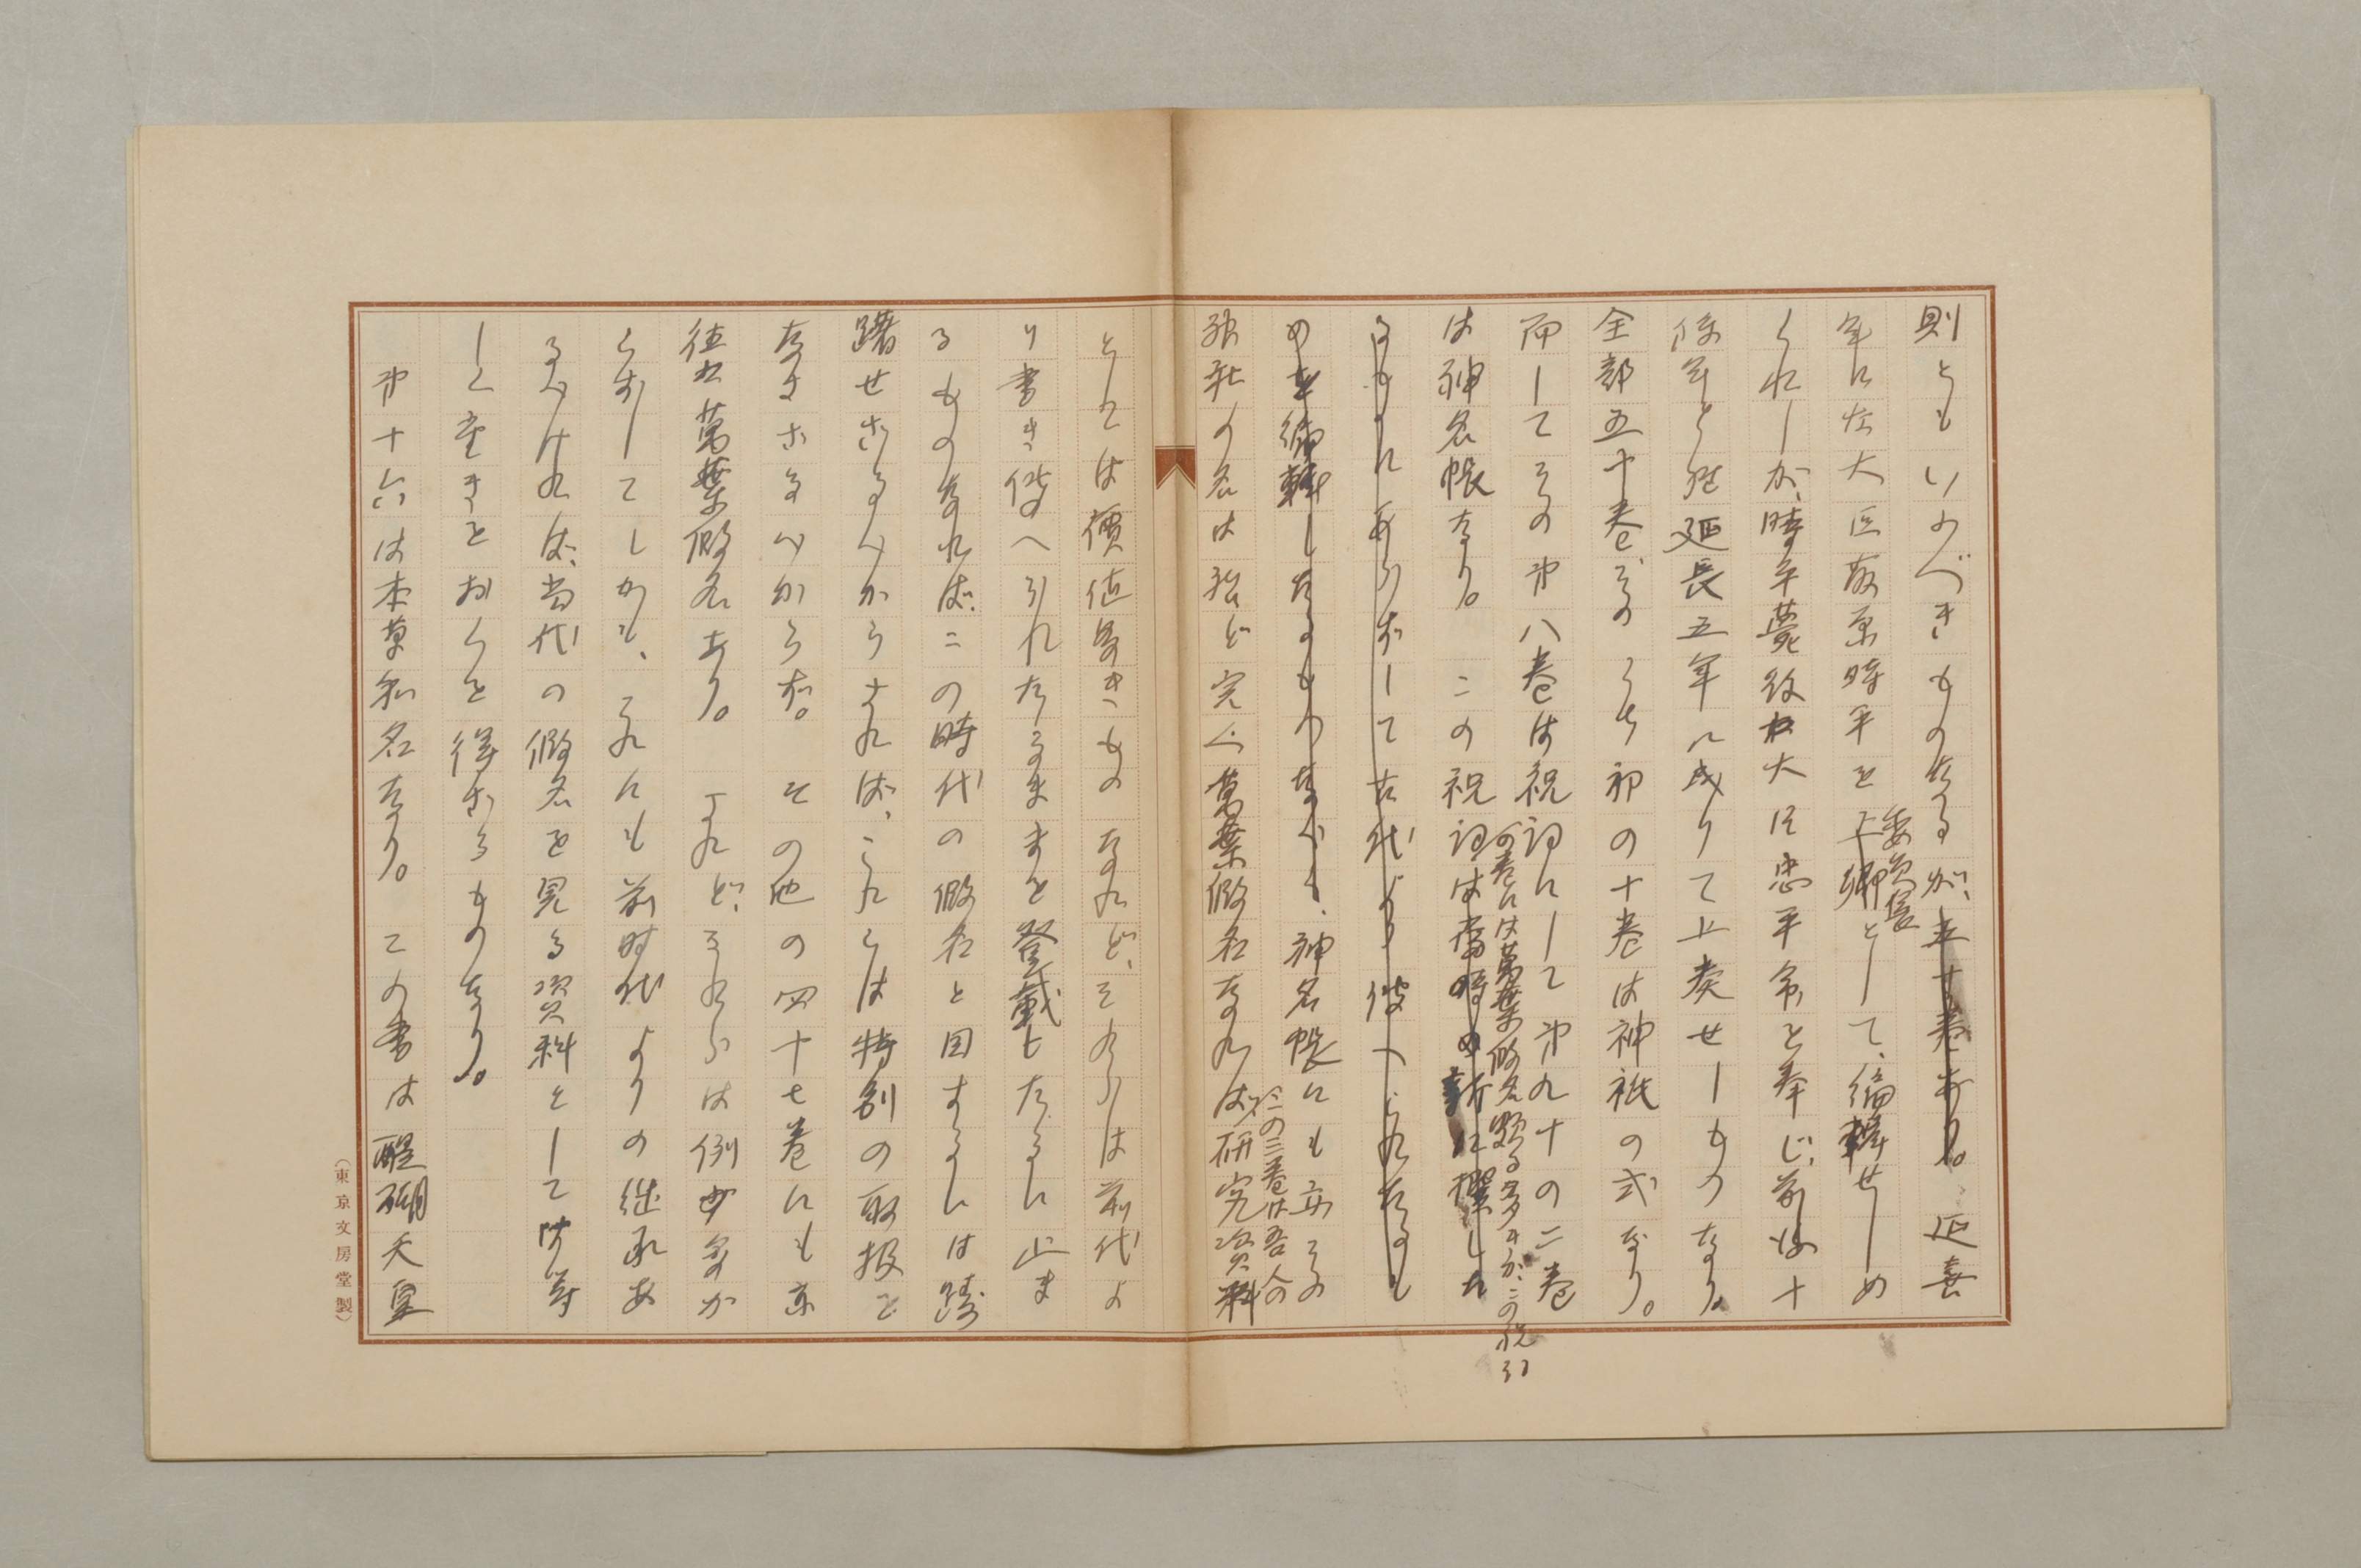 則ともいふべきものなるが、五十巻あり。延喜
年に左大臣藤原時平を上卿として、編輯せしめ
委員長
られしが、時平薨後大臣忠平命を奉じ、前後十
餘年を經延長五年に成りて上奏せしものなり。
全部五十巻、そのうち初の十巻は神祇の式なり。
而してその第八巻は祝詞にして第九十の二巻
は神名帳なり。この祝詞は當時の新に撰した
の巻には萬葉假名頗る多きが、この祝
るものにあらずして古代より傳へられたるも
のを編輯したるものなべく、神名帳にも亦その
この三巻は吾人の
神社の名は殆ど完く萬葉假名なれば、研究資料
としては價値多きものなれど、それらは前代よ
り書き傳へられたるまゝを登載したるに止ま
るものなれば、この時代の假名と目するには躊
躇せざるべからず。されば、これらは特別の取扱を
なさざるべからず。その他の四十七巻にも亦
往々萬葉假名あり。されど、それらは例少多か
らずしてしかも、これにも前時代よりの継承あ
るべければ、當代の假名を見る資料としては等
しく重きをおくを得ざるものなり。
第十六は本草和名なり。この書は醍醐天皇
(東京文房堂製)